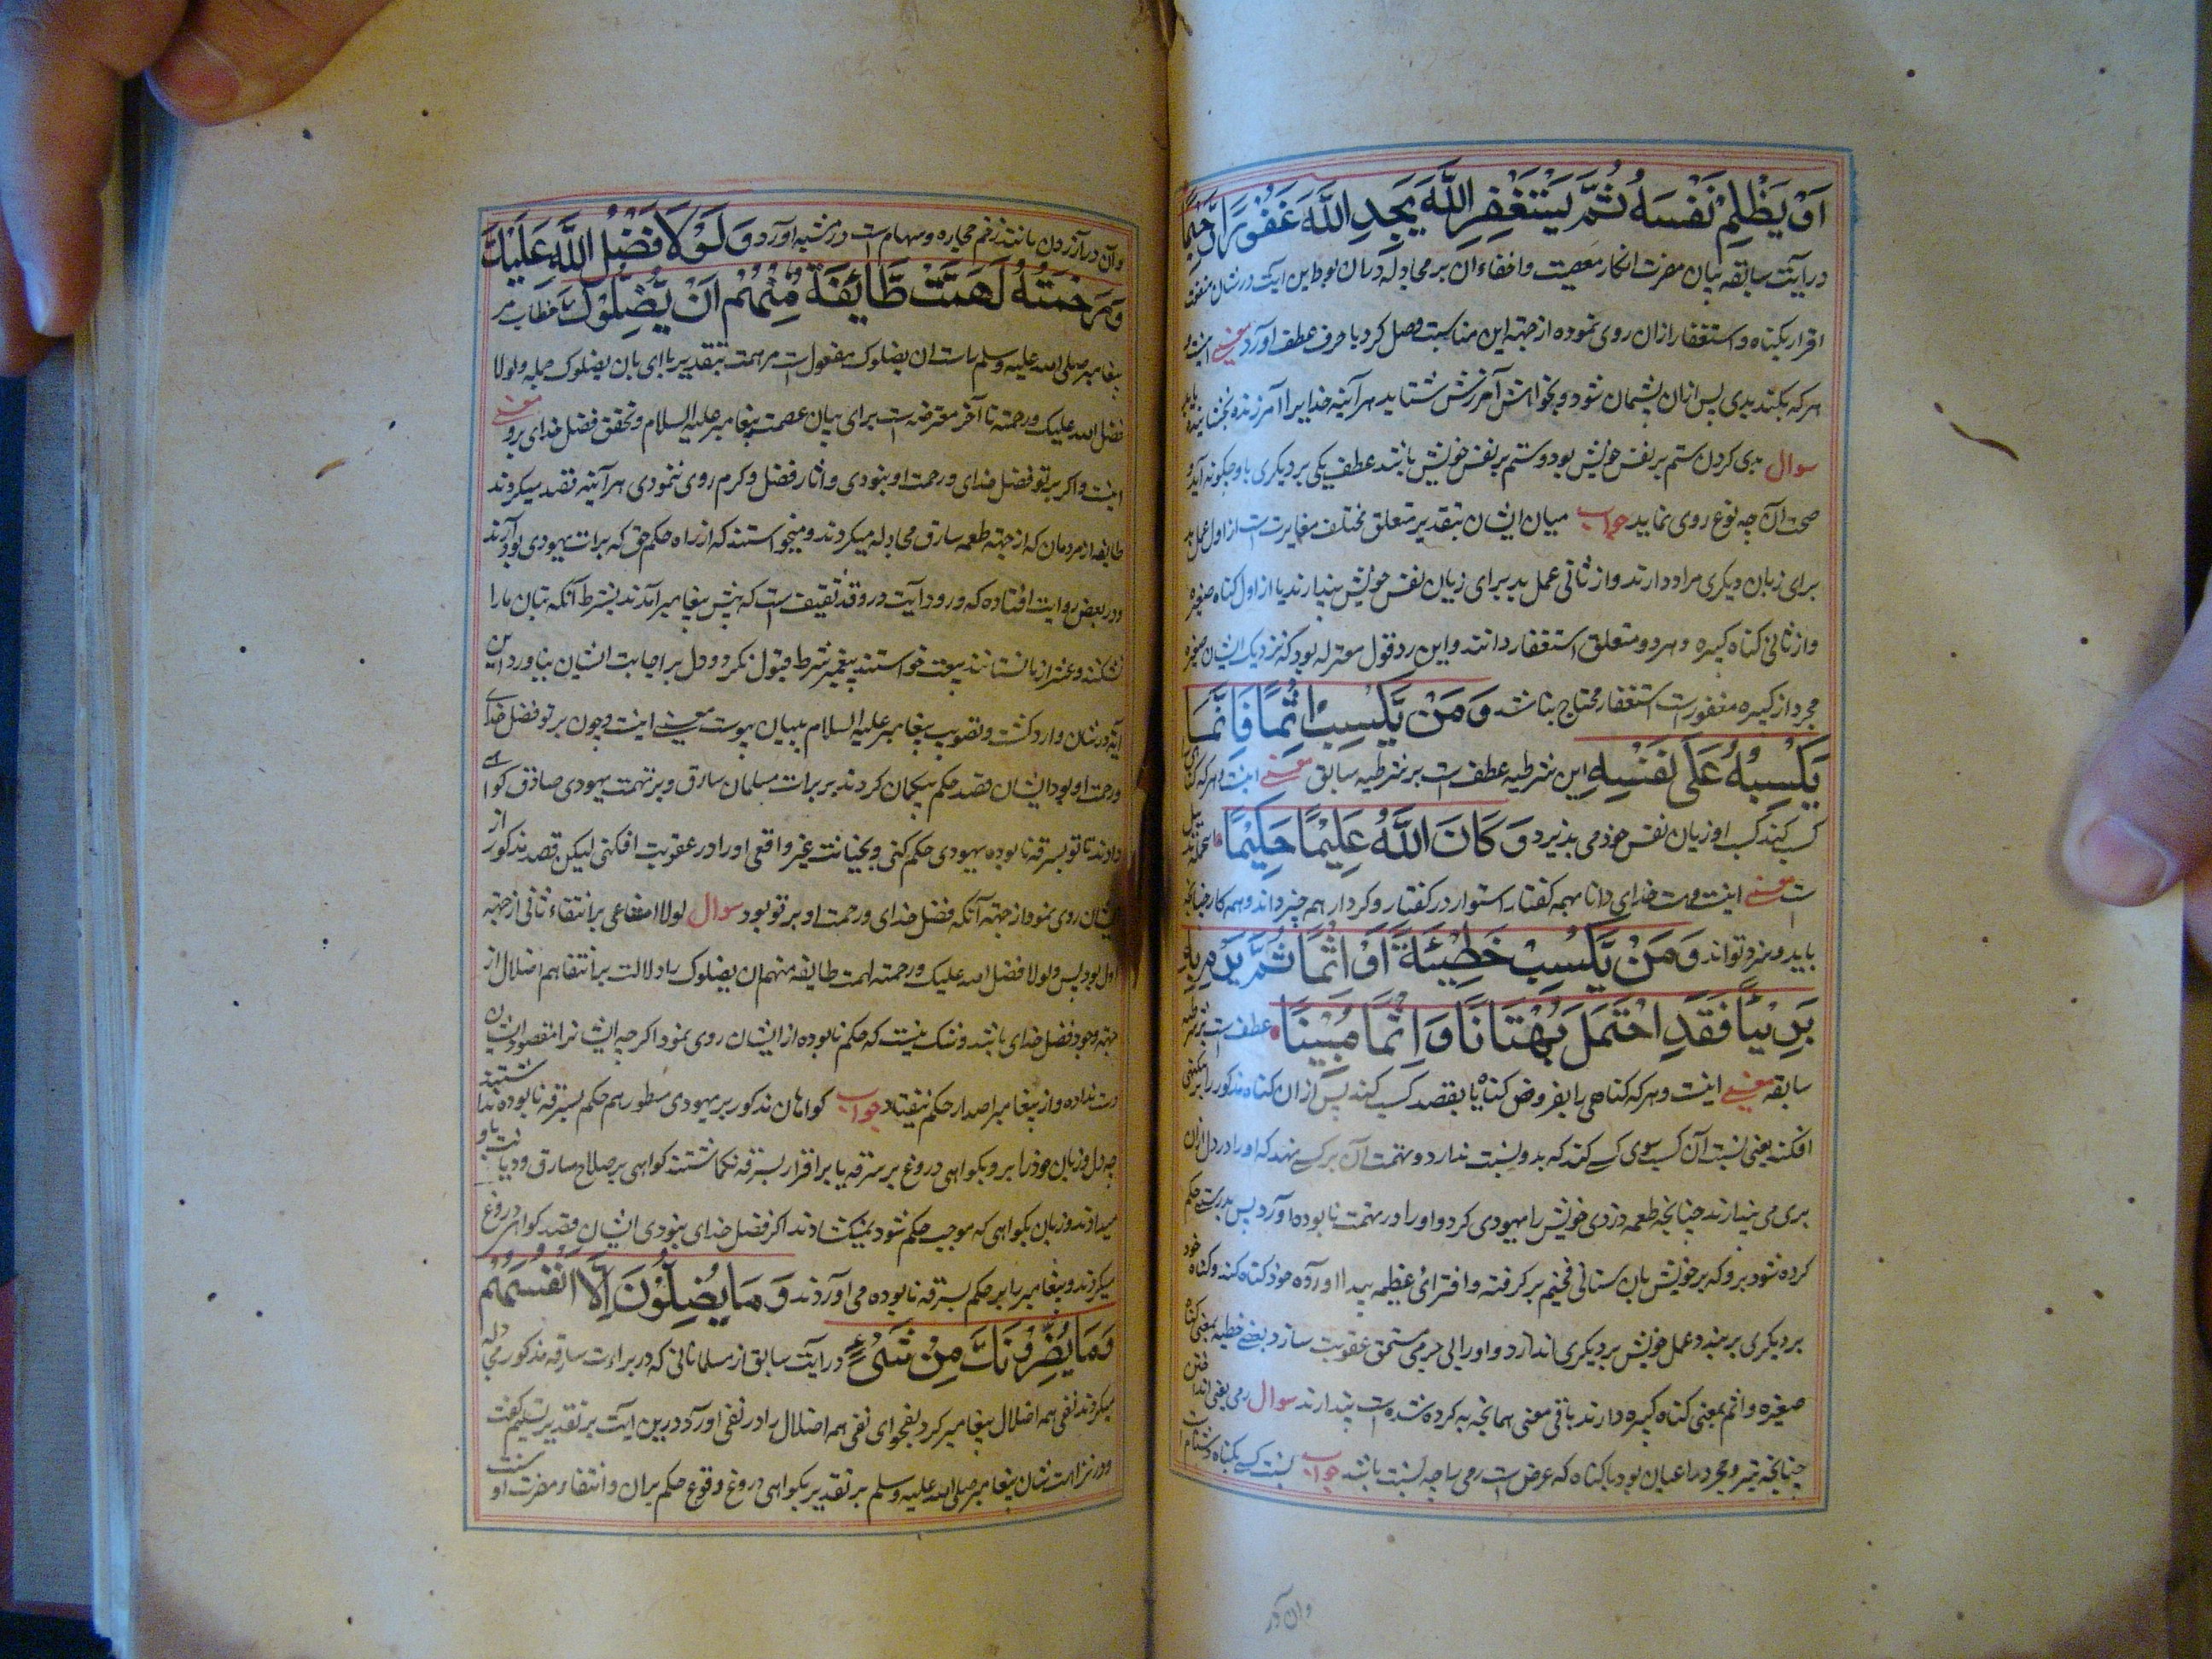 اَوْ يَظْلِمْ نَفْسَهُ ثُمَّ يَسْتَغْفِرِ اللّٰهَ يَجِدِ اللّٰهَ غَفُوْرًا رَّحِيْمًا
در آیت سابقه بیان مضرت انکار معصیت و اخفاء ان بر مجادله در ان بود این آیت در شان منفعت
اقرار بکناه و استغفار ازان روی نموده از جهة این مناسبت وصل کرد با حرف عطف آورد معنی اینست و
هر که بکند بدی پس ازان پشیمان شود و بخواهش آمرزش شتابد هر آئینه خدایرا آمرزنده بخشاینده یابد
سوال بدی کردن ستم بر نفس خویش بود و ستم بر نفس خویش باشد عطف یکی بر دیکری باو چکونه آید و
صحت آن چه نوع روی نماید جواب میان ایشان بتقدیر متعلق مختلف مغایرت است از اول عمل بد
برای زیان دیکری مراد دارند و از ثانی عمل بد برای زیان نفس خویش پندارند یا از اول کناه صغیره
و از ثانی کناه کبیره و هر دو متعلق استغفار دانند و این رد قول معتزله بود که نزدیک ایشان صغیره
مجرد از کبیره مغفورست استغفار محتاج نباشد وَمَنْ يَّكْسِبْ اِثْمًا فَاِنَّمَا
يَكْسِبُهٗ عَلٰى نَفْسِهٖ این شرطیه عطف است بر شرطیه سابق معنی اینست و هر که کناهی
کسب کند کسب او زیان نفس خود می پذیرد وَكَانَ اللّٰهُ عَلِيْمًا حَكِيْمًا
است معنی اینست و هست خدای دانا بهمه کفتار استوار در کفتار و کردار هم چیز داند و همه کار چنانچه
باید و سزد تواند وَمَنْ يَّكْسِبْ خَطِيْئَةً اَوْ اِثْمًا ثُمَّ يَرْمِ بِهٖ
بَرِيْئًا فَقَدِ احْتَمَلَ بُهْتَانًا وَاِثْمًا مُّبِيْنًا عطف است بر شرطیه
سابقه معنی اینست و هر که کناهی را بفروض کناه یا بقصد کسب کند پس ازان کناه مذکور را بر بیکنهی
افکند یعنی نسبت آن کسب سوی کسی کند که بدو نسبت ندارد و تهمت آن بر کسی نهد که او را در دل ازان
بری می پندارند چنانچه طعمه دزدی خویش را بیهودی کرد و او را در تهمت نابوده آورد پس بدرستی حکم
کرده شود برو که بر خویش بهتانی فخیم بر کرفته و افترای عظیمه پیدا آورده خود کناه کند و کناه خود
بر دیکری بربندد عمل خویش بر دیکری اندازد و او را بی جرمی مستحق عقوبت سازد بعضی خطیه بمعنی کناه
صغیره و اثم بمعنی کناه کبیره دارند باقی معنی همانچه به کرده شده است پندارند سوال رمی یعنی انداختن
چنانچه تیر و حجر در اعیان بود با کناه که عرض است رمی را چه نسبت باشد جواب نسبت کسی بکناه و دشنام
وان در
و آن در آزردن مانند زخم حجاره و سهام است در مشبه آورد وَلَوْلَا فَضْلُ اللّٰهِ عَلَيْكَ
وَرَحْمَتُهٗ لَهَمَّتْ طَّائِفَةٌ مِّنْهُمْ اَنْ يُّضِلُّوْكَ خطاب مر
پیغامبر صلی الله علیه وسلم راست ان یضلوک مفعول است مر همت بتقدیر با ای بان یضلوک جمله ولولا
فضل الله علیک ورحمته تا آخر معترضه است برای بیان عصمت پیغامبر علیه السلام و تحقق فضل خدای برو معنی
اینست و اکر بر تو فضل خدای و رحمت او نبودی و آثار فضل و کرم روی ننمودی هر آئینه قصد میکردند
طایفه از مردمان که از جهة طعمه سارق مجادله میکردند و میخواستند که از راه حکم حق که برات یهودی بود آرند
و در بعض روایت افتاده که ورود آیت در وفد ثقیف است که پیش پیغامبر آمدند بشرط آنکه بتان ما را
نشکند و عشر از ما نستانند بیعت خواستند پیغمبر شرط قبول نکرد و دل بر اجابت ایشان نیاورد این
آیة در شان وارد کشت و تصویب پیغامبر علیه السلام ببیان پیوست معنی اینست و چون بر تو فضل خدای
و رحمت او بود ایشان قصد حکم بیکمان کردند بر برات مسلمان سارق و بر تهمت یهودی صادق کواهی
دادند تا تو بسرقه نابوده یهودی حکم کنی و بخیانت غیر واقعی او را در عقوبت افکنی لیکن قصد مذکور از
ایشان روی نمود از جهة آنکه فضل خدای و رحمت او بر تو بود سوال لولا امتناعی بر انتفاء ثانی از جهة
اول بود پس ولولا فضل الله علیک ورحمته لهمت طایفه منهم ان یضلوک را دلالت بر انتفا هم اضلال از
جهة وجود فضل خدای باشد و شک نیست که حکم نابوده از ایشان روی نمود اکرچه ایشانرا مقصود ایشان
دست نداده و از پیغامبر اصدار حکم نیفتاد جواب کواهان مذکور بر یهودی مسطور هم حکم بسرقه نابوده نداشتند
چه دل و زبان خود را برو بکواهی دروغ بر سرقه یا بر اقرار بسرقه نکماشتند کواهی بر صلاح سارق و دیانت او
میدادند و زبان بکواهی که موجب حکم شود نمیکشادند اکر فضل خدای نبودی ایشان قصد کواهی دروغ
میکردند و پیغامبر را بر حکم بسرقه نابوده می آوردند وَمَا يُضِلُّوْنَ اِلَّا اَنْفُسَهُمْ
وَمَا يَضُرُّوْنَكَ مِنْ شَيْءٍ در آیت سابق از مسلمانانی که در براءت سارقه مذکور مجادله
میکردند نفی هم اضلال پیغامبر کرد بفحوای نفی هم اضلال را در نفی آورد درین آیت بر تقدیر تسلیم کفت
و در نزاهت شان پیغامبر صلی الله علیه وسلم بر تقدیر بکواهی دروغ وقوع حکم بران و انتفاء مضرت او